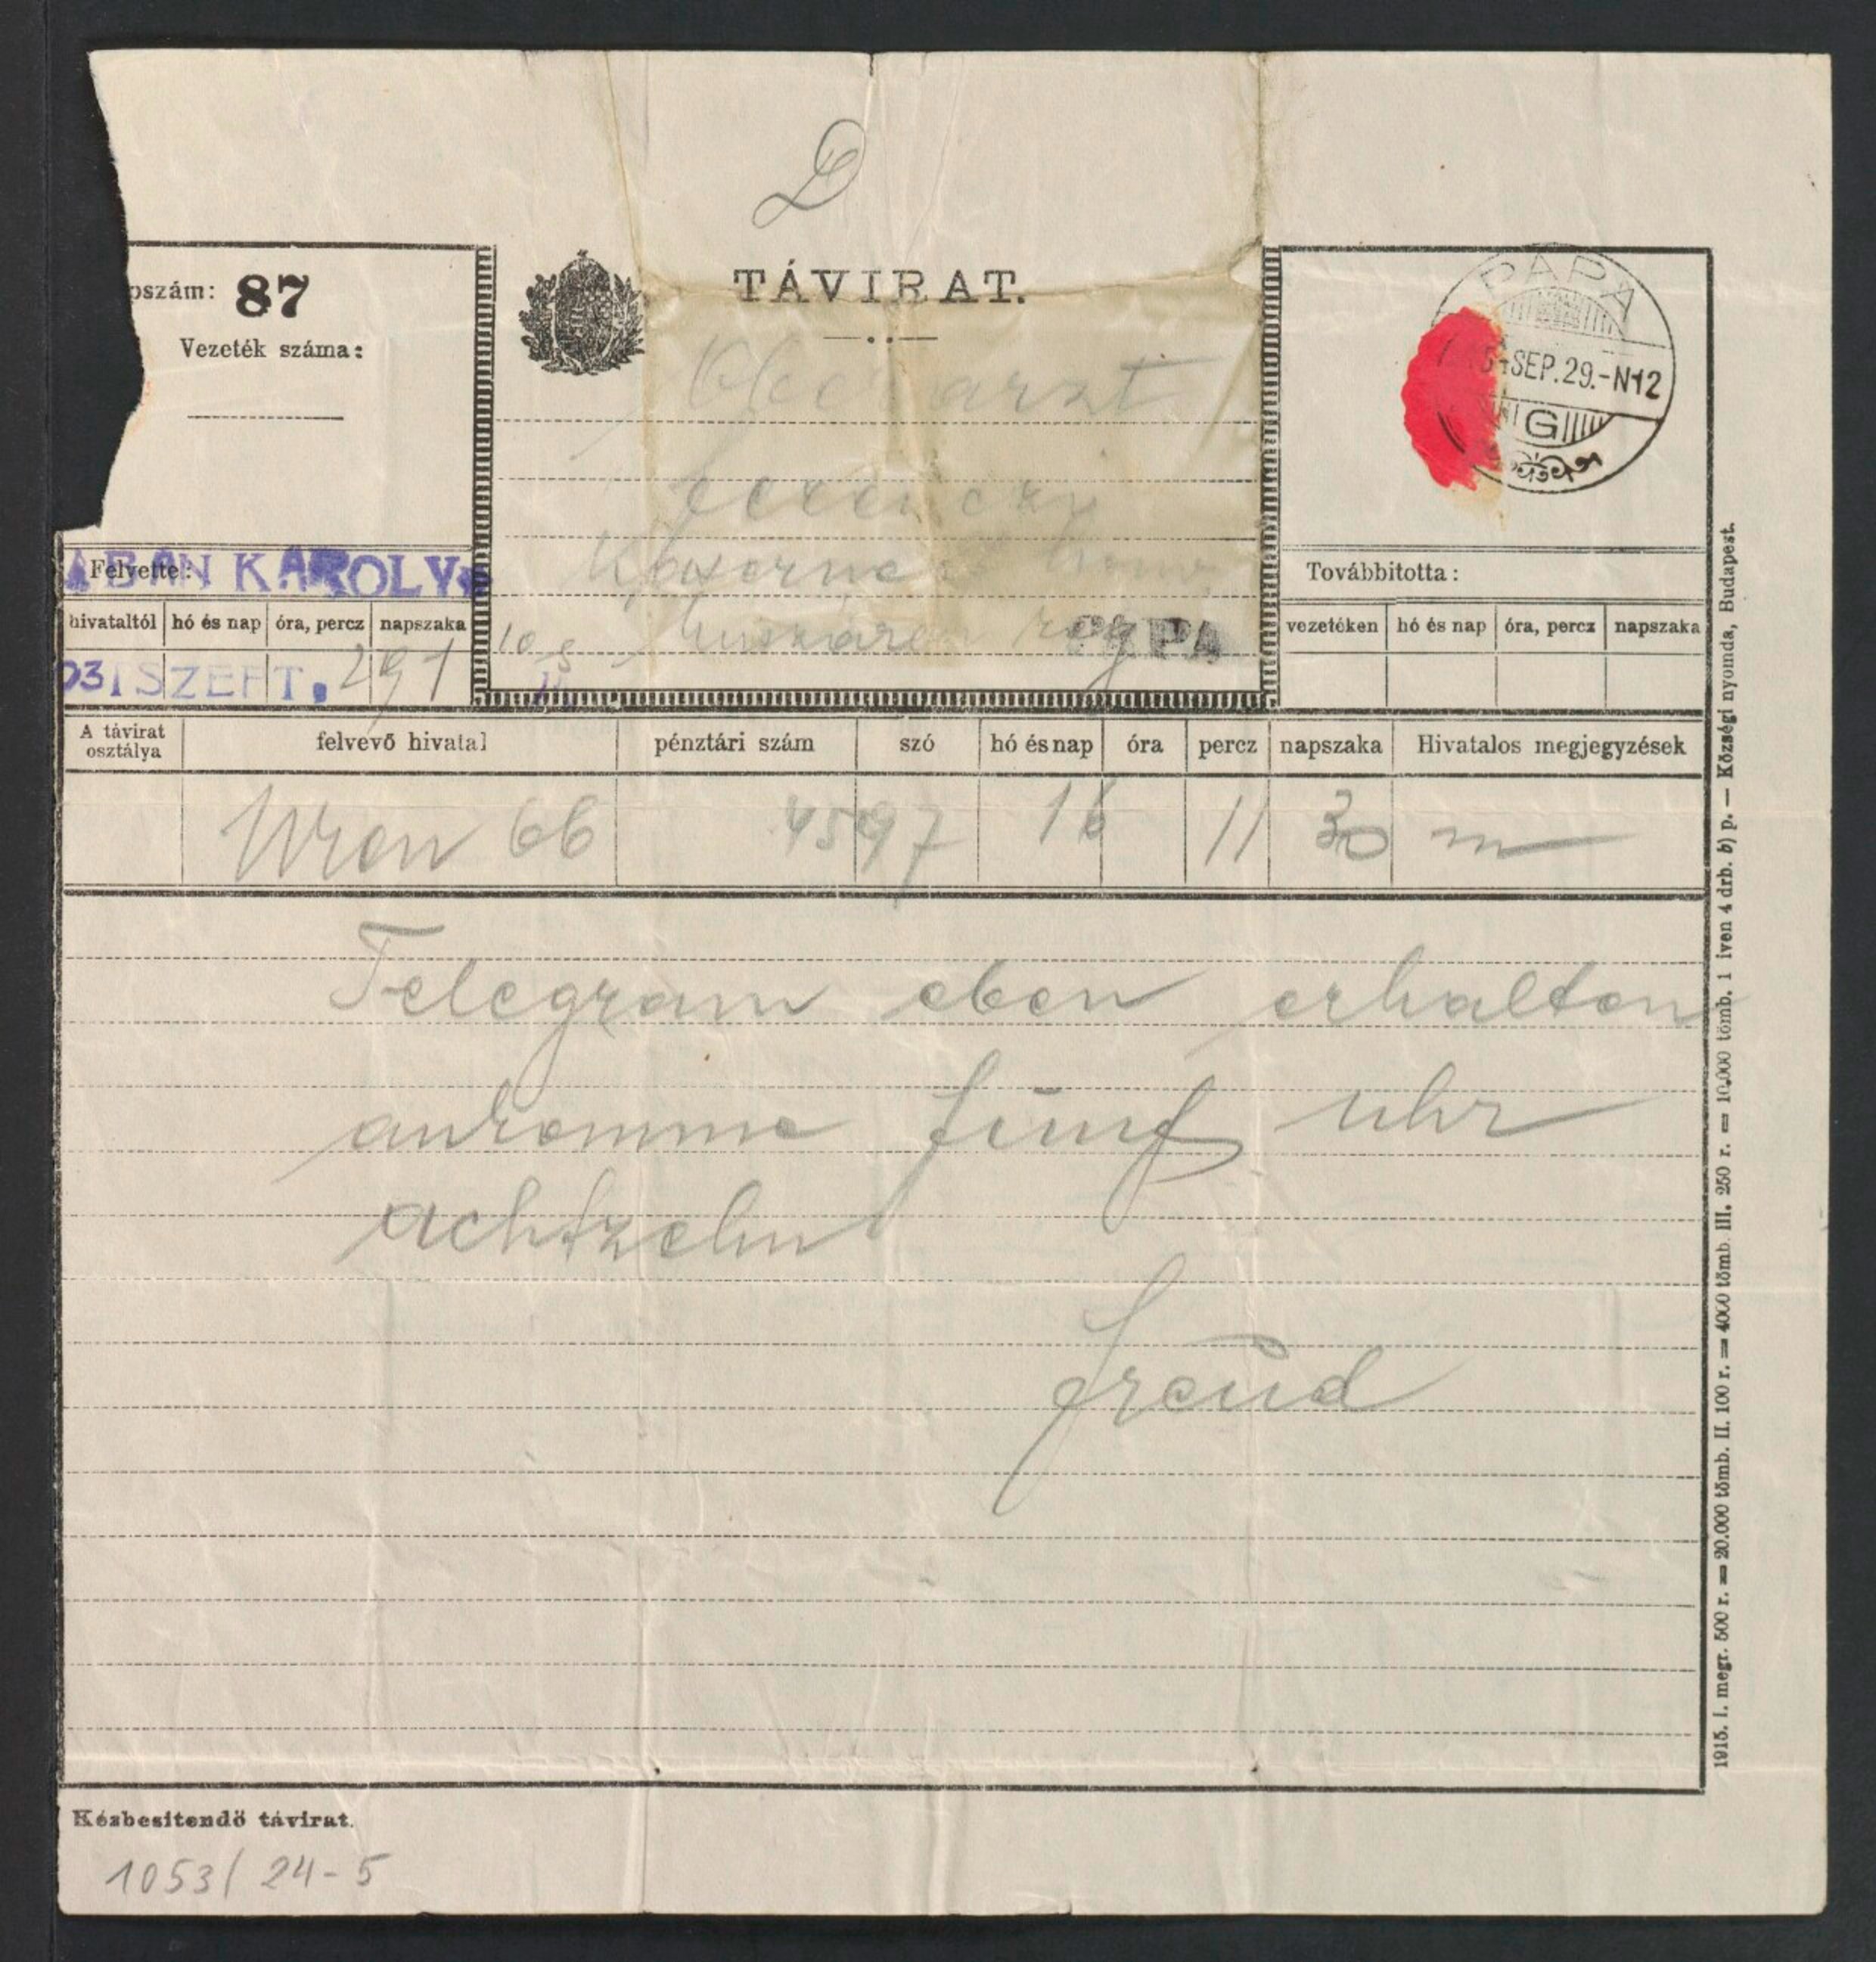 D
pszám: 87
Vezeték száma:
TÁVIRAT.
arzt
Ferenczi
Kaserne
PÁPA
SEP.29.-N12
G
ABAN KAROLY
Felvette:
hivataltól hó és nap óra, percz napszaka
SZEPT. 29 1
Továbbitotta:
vezetéken hó és nap óra, percz napszaka
A távirat osztálya felvevő hivatal pénztári szám szó hó és nap óra percz napszaka Hivatalos megjegyzések
Wien 66 4597 16 11 30 m
Telegram eben erhalten
ankomme fünf uhr
achtzehn
Freud
Kézbesitendő távirat.
1053/24-5
1915. I. megr. 500 r. = 20.000 tömb. II. 100 r. = 4000 tömb. III. 250 r. = 10.000 tömb. 1 iven 4 drb. b) p. — Községi nyomda, Budapest.